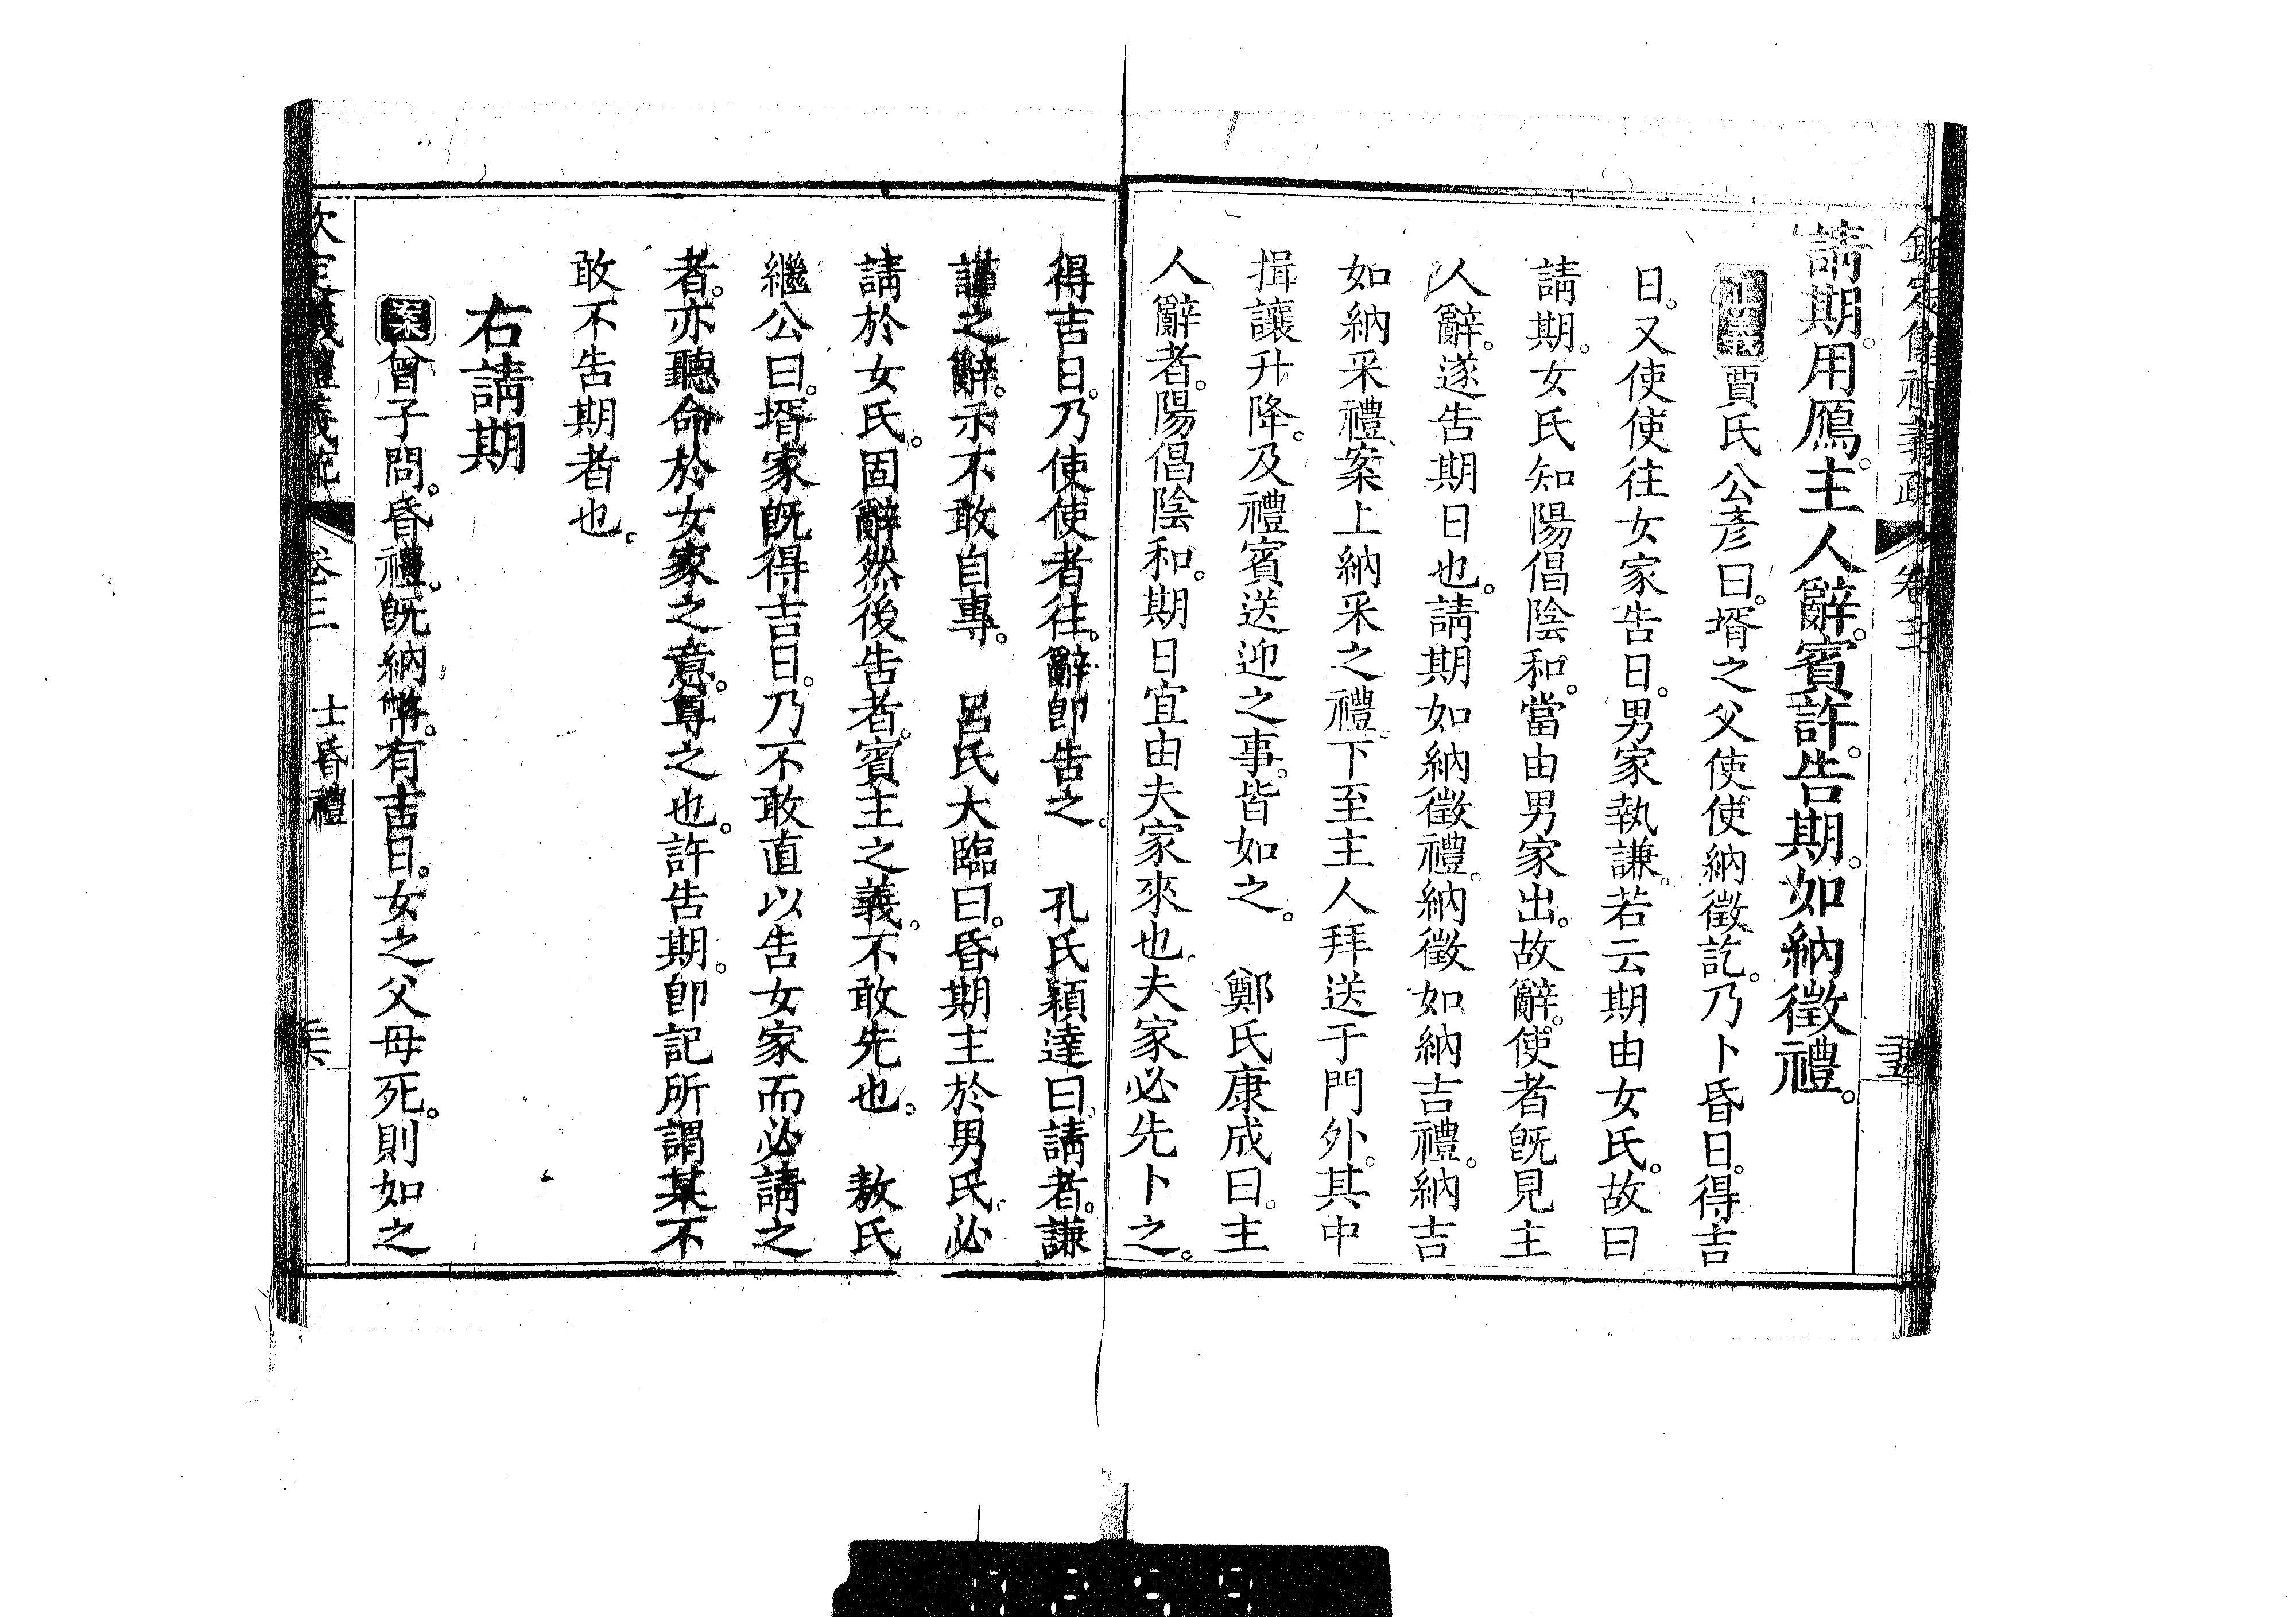 請期。用鴈。主人辭。賓許。告期。如納徵禮。
正義賈氏公彥曰。壻之父使使納徵訖。乃卜昏日。得吉
日。又使使往女家告日。男家執謙。若云期由女氏。故曰
請期。女氏知陽倡陰和。當由男家出。故辭。使者既見主
人辭。遂告期日也。請期如納徵禮。納徵如納吉禮。納吉
如納采禮。案上納采之禮。下至主人拜送于門外。其中
揖讓升降。及禮賓送迎之事。皆如之。 鄭氏康成曰。主
人辭者。陽倡陰和。期日宜由夫家來也。夫家必先卜之。
得吉日。乃使使者往。辭即告之。 孔氏穎達曰。請者。謙
謹之辭。示不敢自專。 呂氏大臨曰。昏期主於男氏。必
請於女氏。固辭然後告者。賓主之義。不敢先也。 敖氏
繼公曰。壻家既得吉日。乃不敢直以告女家而必請之
者。亦聽命於女家之意。尊之也。許告期。即記所謂某不
敢不告期者也。
右請期
案曾子問。昏禮。既納幣。有吉日。女之父母死。則如之
欽定儀禮義疏 卷三 士昏禮